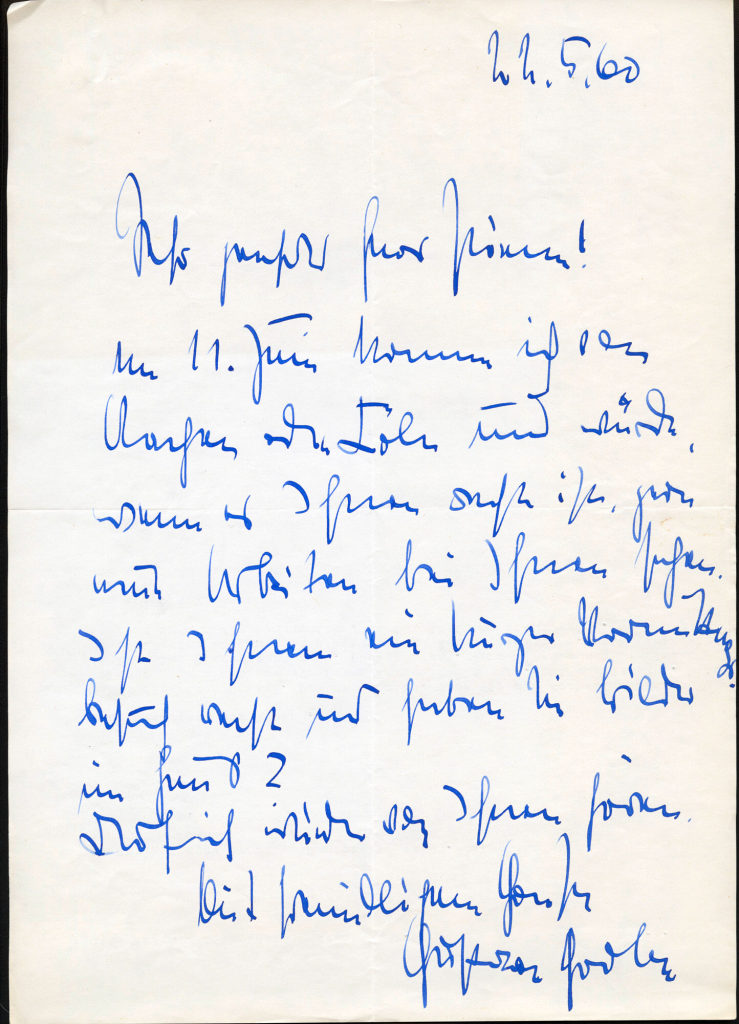 22.5.60
Sehr geehrter Herr
Am 11. Juni komme ich von
Aachen oder Köln und würde,
wenn es Ihnen recht ist, gern
neue Arbeiten bei Ihnen sehen.
Ist Ihnen ein kurzer Vormittags-
besuch recht und haben Sie Bilder
im Haus?
würde von Ihnen hören.
Mit freundlichem Gruss